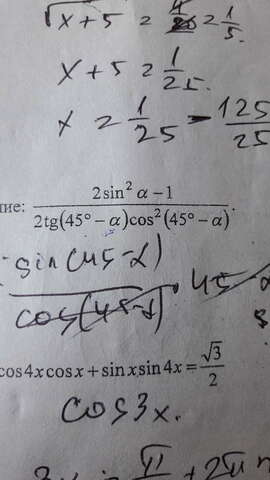 √x + 5 ≥ = 1/5.
x + 5 ≥ 1/25.
x ≥ 1/25 - 125/25
ние: (2sin² α – 1)/(2tg(45° – α)cos²(45° – α)).
sin(45-α)
cos(45-α) · 45
cos4x cosx + sinx sin4x = √3/2
cos3x.
π + 2πn